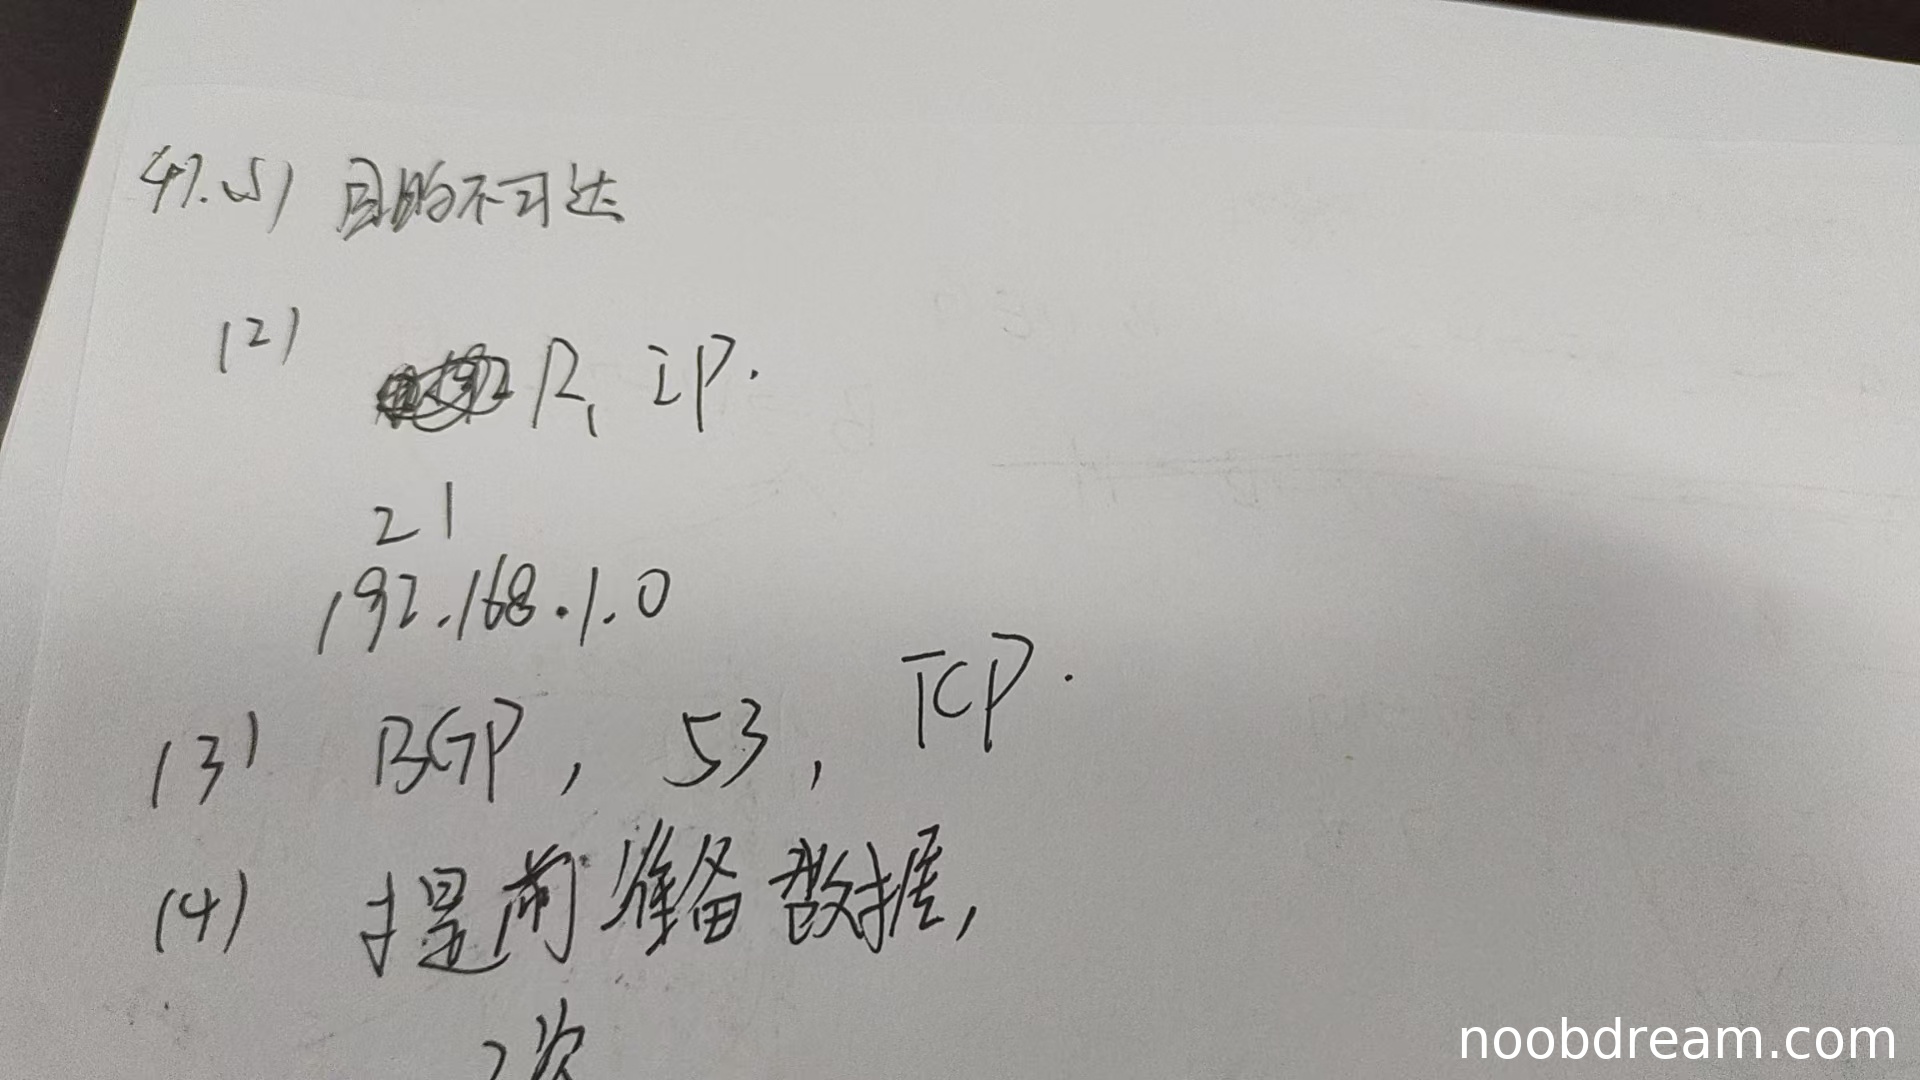 47.(1) 目的不可达
(2) R1 IP.
21
192.168.1.0
(3) BGP, 53, TCP.
(4) 提前准备数据,
2次
noobdream.com